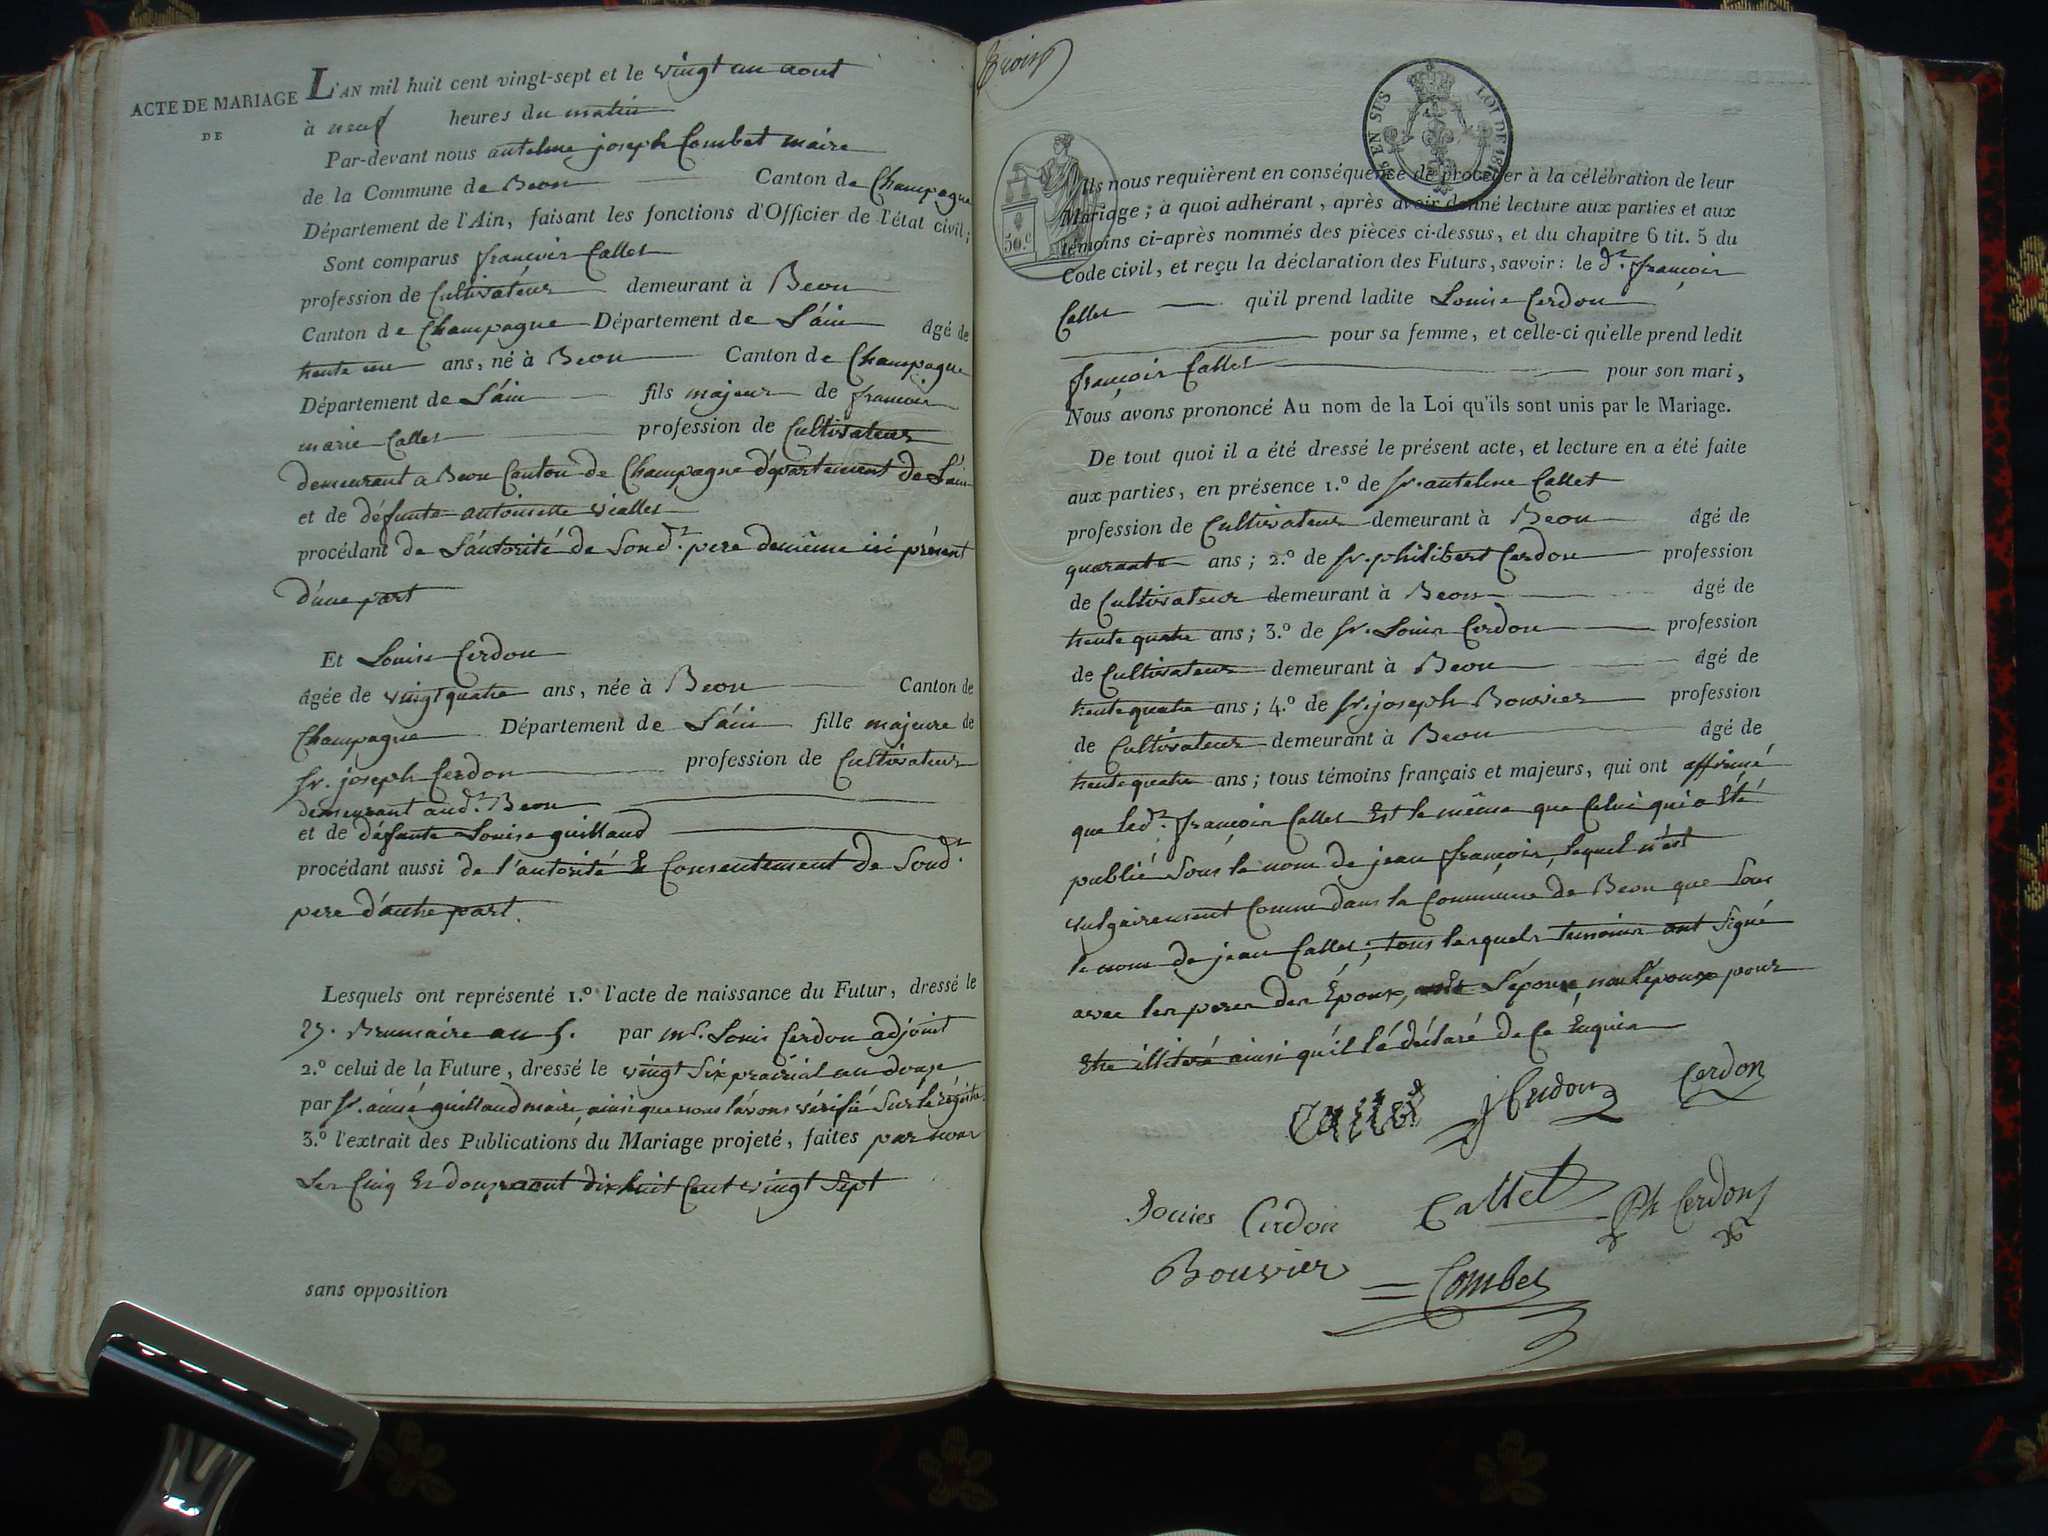 ACTE DE MARIAGE
DE
L'AN mil huit cent vingt-sept et le vingt un aout
à neuf heures du matin
Par-devant nous antelme joseph Combet maire
de la Commune de Beon Canton de Champagne
Département de l'Ain, faisant les fonctions d'Officier de l'état civil;
Sont comparus françois Callet
profession de Cultivateur demeurant à Beon
Canton de Champagne Département de L'ain âgé de
trente un ans, né à Beon Canton de Champagne
Département de L'ain fils majeur de francois
marie Callet profession de Cultivateur
demeurant a Beon Canton de Champagne département de L'ain
et de défunte antoinette viallet
procédant de L'autorité de Son dt. pere de même ici présent
d'une part
Et Louise Cerdon
âgée de vingt quatre ans, née à Beon Canton de
Champagne Département de L'ain fille majeure de
Sr. joseph Cerdon profession de Cultivateur
demeurant aud. Beon
et de défunte Louise guillaud
procédant aussi de l'autorité & Consentement de Sond.
pere d'autre part.
Lesquels ont représenté 1.º l'acte de naissance du Futur, dressé le
Brumaire an 5. par mr. Louis Cerdon adjoint
2.º celui de la Future, dressé le vingt Six prairial an douze
par Sr. aimé guillaud maire, ainsi que nous l'avons vérifié Sur le régistre
3.º l'extrait des Publications du Mariage projeté, faites par nous
Les Cinq Et douze aout dix huit Cent vingt Sept
sans opposition
EN SUS LOI DE
50.c
Ils nous requièrent en conséquence de procéder à la célébration de leur
Mariage; à quoi adhérant, après avoir donné lecture aux parties et aux
témoins ci-après nommés des pièces ci-dessus, et du chapitre 6 tit. 5 du
Code civil, et reçu la déclaration des Futurs, savoir: le dt. françois
Callet qu'il prend ladite Louise Cerdon
pour sa femme, et celle-ci qu'elle prend ledit
françois Callet pour son mari,
Nous avons prononcé Au nom de la Loi qu'ils sont unis par le Mariage.
De tout quoi il a été dressé le présent acte, et lecture en a été faite
aux parties, en présence 1.º de Sr. antelme Callet
profession de Cultivateur demeurant à Beon âgé de
quarante ans; 2.º de Sr. philibert Cerdon profession
de Cultivateur demeurant à Beon âgé de
trente quatre ans; 3.º de Sr. Louis Cerdon profession
de Cultivateur demeurant à Beon âgé de
trente quatre ans; 4.º de Sr. joseph Bouvier profession
de Cultivateur demeurant à Beon âgé de
trente quatre ans; tous témoins français et majeurs, qui ont affirmé
que led. françois Callet Est le même que Celui qui a Eté
publié Sous le nom de jean françois, lequel n'est
vulgairement Connu dans la Commune de Beon que Sous
le nom de jean Callet; tous lesquels temoins ont Signé
avec les peres des Époux, L'épouse, non L'époux pour
Etre illiteré ainsi qu'il l'á déclaré de Ce Enquis
Callet jCerdon Cerdon
Louies Cerdon Callet Ph Cerdon
Bouvier Combet